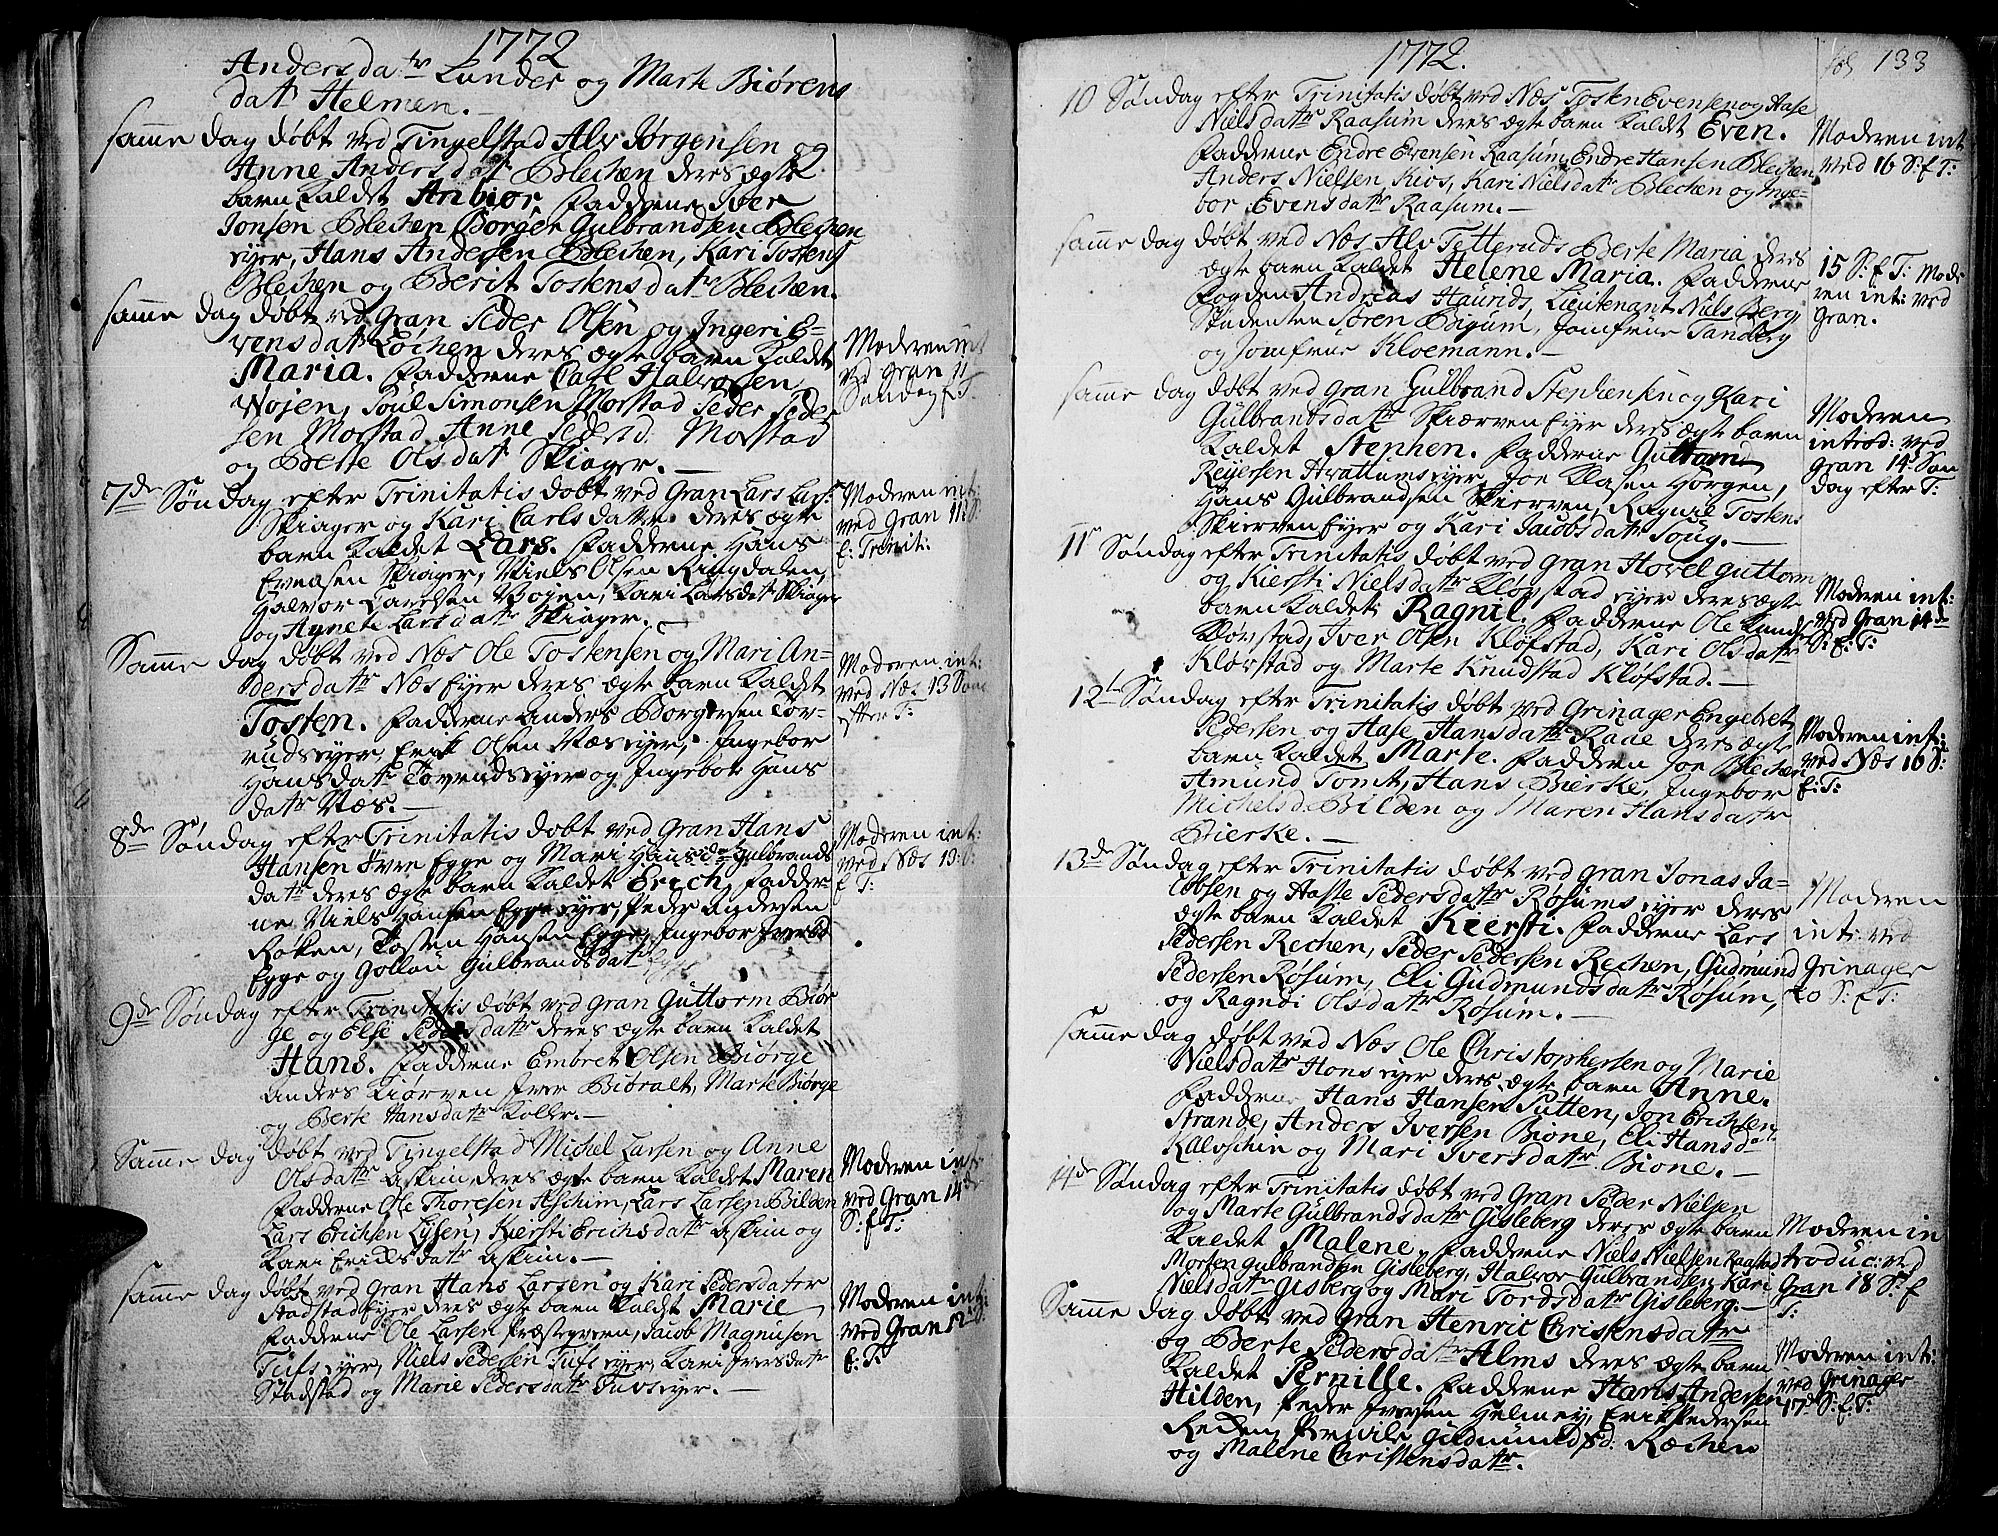 1772
Andersdatr Lunder og Marte Biørens
datr Helmen.
samme dag døbt ved Tingelstad Alv Jørgensen og
Anne Andersdatr Blechen deres ægte
barn kaldet Anbiør. Fadderne Iver
Jonsen Blechen Borger Gulbrandsen Blechen
eyer, Hans Andersen Blechen, Kari Tostens
Blechen og Berit Tostensdatr Blechen.
samme dag døbt ved Gran Peder Olsen og Ingeri E-
vensdatr Lochen deres ægte barn kaldet
Maria. Fadderne Carl Halvorsen
Wojen, Poul Simonsen Morstad Peder Peder
sen Morstad Anne Pedersd. Morstad
og Berte Olsdatr Skiager.
Moderen int
ved Gran 11
Søndag f T.
7de Søndag efter Trinitatis døbt ved Gran Lars Lars:
Skiager og Kari Carlsdatr deres ægte
barn kaldet Lars. Fadderne Hans
Evensen Skiager, Niels Olsen Ringdalen,
Halvor Larsen Bogen, Kari Larsdatr Skiager
og Agnete Larsdatr Skiager.
Moderen int:
ved Gran 11: S:
f: Trinit:
Samme dag døbt ved Næs Ole Tostensen og Mari An-
dersdatr Næs Eyer deres ægte barn kaldet
Tosten. Fadderne Anders Borgersen Tor-
rudseyer, Erik Olsen Næseyer, Ingebor
Hansdatr Torrudseyer og Ingebor Hans
datr Næs.
Moderen int:
ved Næs 13 Søn
efter T:
8de Søndag efter Trinitatis døbt ved Gran Hans
Hansen Øvre Egge og Mari Gulbrands
datr deres ægte barn kaldet Erich. Fadder-
ne Niels Hansen Eggeeyer, Peder Andersen
Røken, Tosten Hansen Egge, Ingebor
Egge og Gollau Gulbrandsdatr
Moderen int:
ved Næs 13: S:
f T:
9de Søndag efter Trinitatis døbt ved Gran Guttorm Biør
ge og Else Pedersdatr deres ægte barn kaldet
Hans. Fadderne Embret Olsen Biørge
Anders Kiørven Iver Bibralt, Marte Biørge
og Berte Hansdatr Koller.
Samme dag døbt ved Tingelstad Michel Larsen og Anne
Olsdatr Askim, deres ægte barn kaldet Maren
Fadderne Ole Thoresen Aschim, Lars Larsen Bilden
Lars Erichsen Lysen, Kiersti Erichsdatr Askim og
Kari Eriksdatr Askim.
Moderen int:
ved Gran 14de
S: f T:
samme dag døbt ved Gran Hans Larsen og Kari Pedersdatr
Stadstad Eyer deres ægte barn kaldet Marie
Fadderne Ole Larsen Præstegveren, Jacob Magnusen
Tufseyer, Niels Pedersen Tufseyer, Kari Iversdatr
Stadstad og Marie Pedersdatr Tuvseyer.
Moderen int:
ved Gran 12 S:
f: T:
1772.
fol 133
10 Søndag efter Trinitatis døbt ved Næs Tosten Evensen og Aase
Nielsdatr Raasum deres ægte barn kaldet Even.
Fadderne Endre Evensen Raasum, Endre Hansen Blechen
Anders Nielsen Kios, Kari Nielsdatr Blechen og Inge-
bor Evensdatr Raasum.
Moderen int
ved 16 S: f T:
samme dag døbt ved Næs Alv Tetteruds Berte Maria deres
ægte barn kaldet Helene Maria. Fadderne
Fogden Andreas Haurids, Lieutenant Niels Berg,
Studenten Søren Bigum, Jomfrue Tandberg
og Jomfrue Kloemann.
15 S: f T: Mode
ren int: ved
Gran.
samme dag døbt ved Gran Gulbrand Stephensen og Kari
Gulbrandsdatr Skiærven Eyer deres ægte barn
kaldet Stephen. Fadderne Guttorm
Reyersen Hvattumseyer, Joe Klasen Horgen,
Hans Gulbrandsen Skierven, Ragnil Tostens
Skierven Eyer og Kari Jacobsdatr Toug.
Moderen
introd: ved
Gran 14 Søn
dag efter T:
11 Søndag efter Trinitatis døbt ved Gran Hovel Guttorm
og Kiersti Nielsdatr Kløvstad eyer deres ægte
barn kaldet Ragnil. Fadderne Ole
Kløvstad, Iver Olsen Kløfstad, Kari Olsdatr
Kløvstad og Marte Knudstad Kløfstad.
Moderen int:
ved Gran 14de
S: f: T:
12te Søndag efter Trinitatis døbt ved Grinager Engebret
Pedersen og Aase Hansdatr Raae deres ægte
barn kaldet Marte. Faddern Joe Blechen
Amund Tomt, Hans Bierke, Ingebor
Michelsd Bilden og Maren Hansdatr
Bierke.
Moderen int:
ved Næs 16 S:
f: T:
13de Søndag efter Trinitatis døbt ved Gran Jonas Ja-
cobsen og Aasse Pedersdatr Røsums eyer deres
ægte barn kaldet Kiersti. Fadderne Lars
Pedersen Rechen, Peder Pedersen Rechen, Gudmund
Pedersen Røsum, Eli Gudmundsdatr Røsum,
og Ragndi Olsdatr Røsum.
Moderen
int: ved
Grinager
20 S: f T:
samme dag døbt ved Næs Ole Christophersen og Marie
Nielsdatr Honseyer deres ægte barn Anne.
Fadderne Hans Hansen Putten, Jon Erichsen
Strande, Anders Iversen Bione, Eli Hansd
Kalvschin og Mari Iversdatr Bione.
14de Søndag efter Trinitatis døbt ved Gran Peder Nielsen
og Marte Gulbrandsdatr Gisleberg deres ægte barn
kaldet Malene. Fadderne Niels Nielsen Raastad
Morten Gulbrandsen Gisleberg, Halvor Gulbrandsen, Kari
Nielsdatr Gisberg og Mari Tordsdatr Gisleberg.
Moderen in
troduc: ved
Gran 18 S: f
T:
Samme dag døbt ved Gran Henric Christensdatr
og Berte Pedersdatr Alms deres ægte barn
kaldet Pernille. Fadderne Hans Andersen
Hilden, Peder Iversen Helmey, Erik Pedersen
Reden, Gudmundsd: Røchen
og Malene Christensdatr.
Moderen int:
ved Grinager
17de S: f: T: